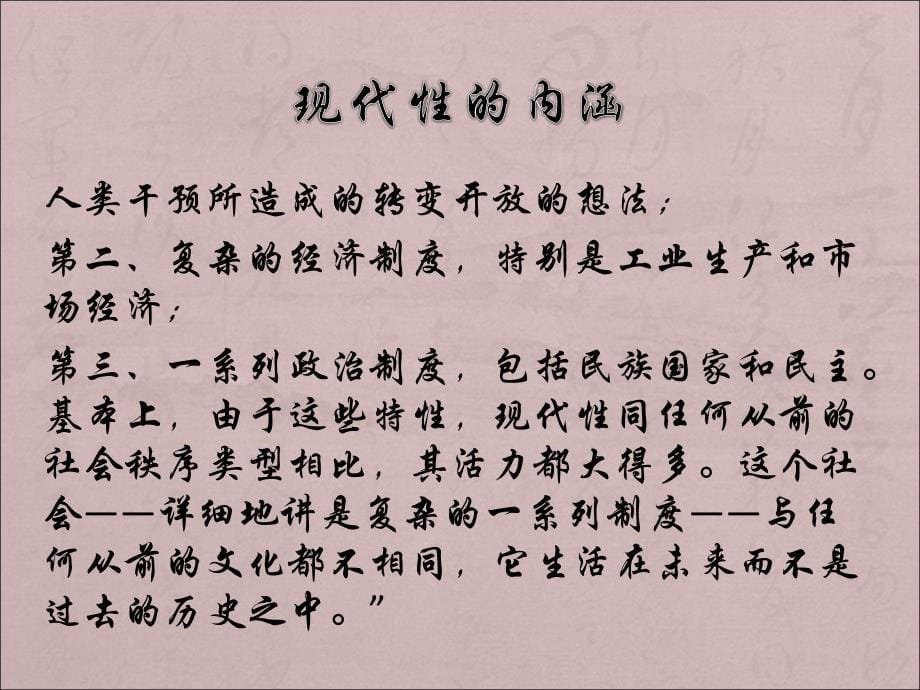 现代性的内涵
人类干预所造成的转变开放的想法；
第二、复杂的经济制度，特别是工业生产和市
场经济；
第三、一系列政治制度，包括民族国家和民主。
基本上，由于这些特性，现代性同任何从前的
社会秩序类型相比，其活力都大得多。这个社
会——详细地讲是复杂的一系列制度——与任
何从前的文化都不相同，它生活在未来而不是
过去的历史之中。”